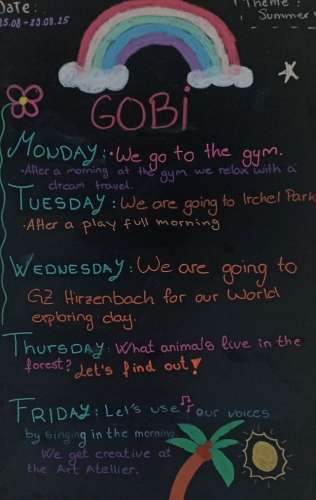 Date:
25.08 - 29.08.25
Theme:
Summer
GOBI
MONDAY: • We go to the gym.
• After a morning at the gym we relax with a
dream travel.
TUESDAY: We are going to Irchel Park
• After a play full morning
WEDNESDAY: We are going to
GZ Hirzenbach for our World
exploring day.
THURSDAY: What animals live in the
forest? Let's find out!
FRIDAY: Let's use our voices
by singing in the morning
We get creative at
the Art Atellier.